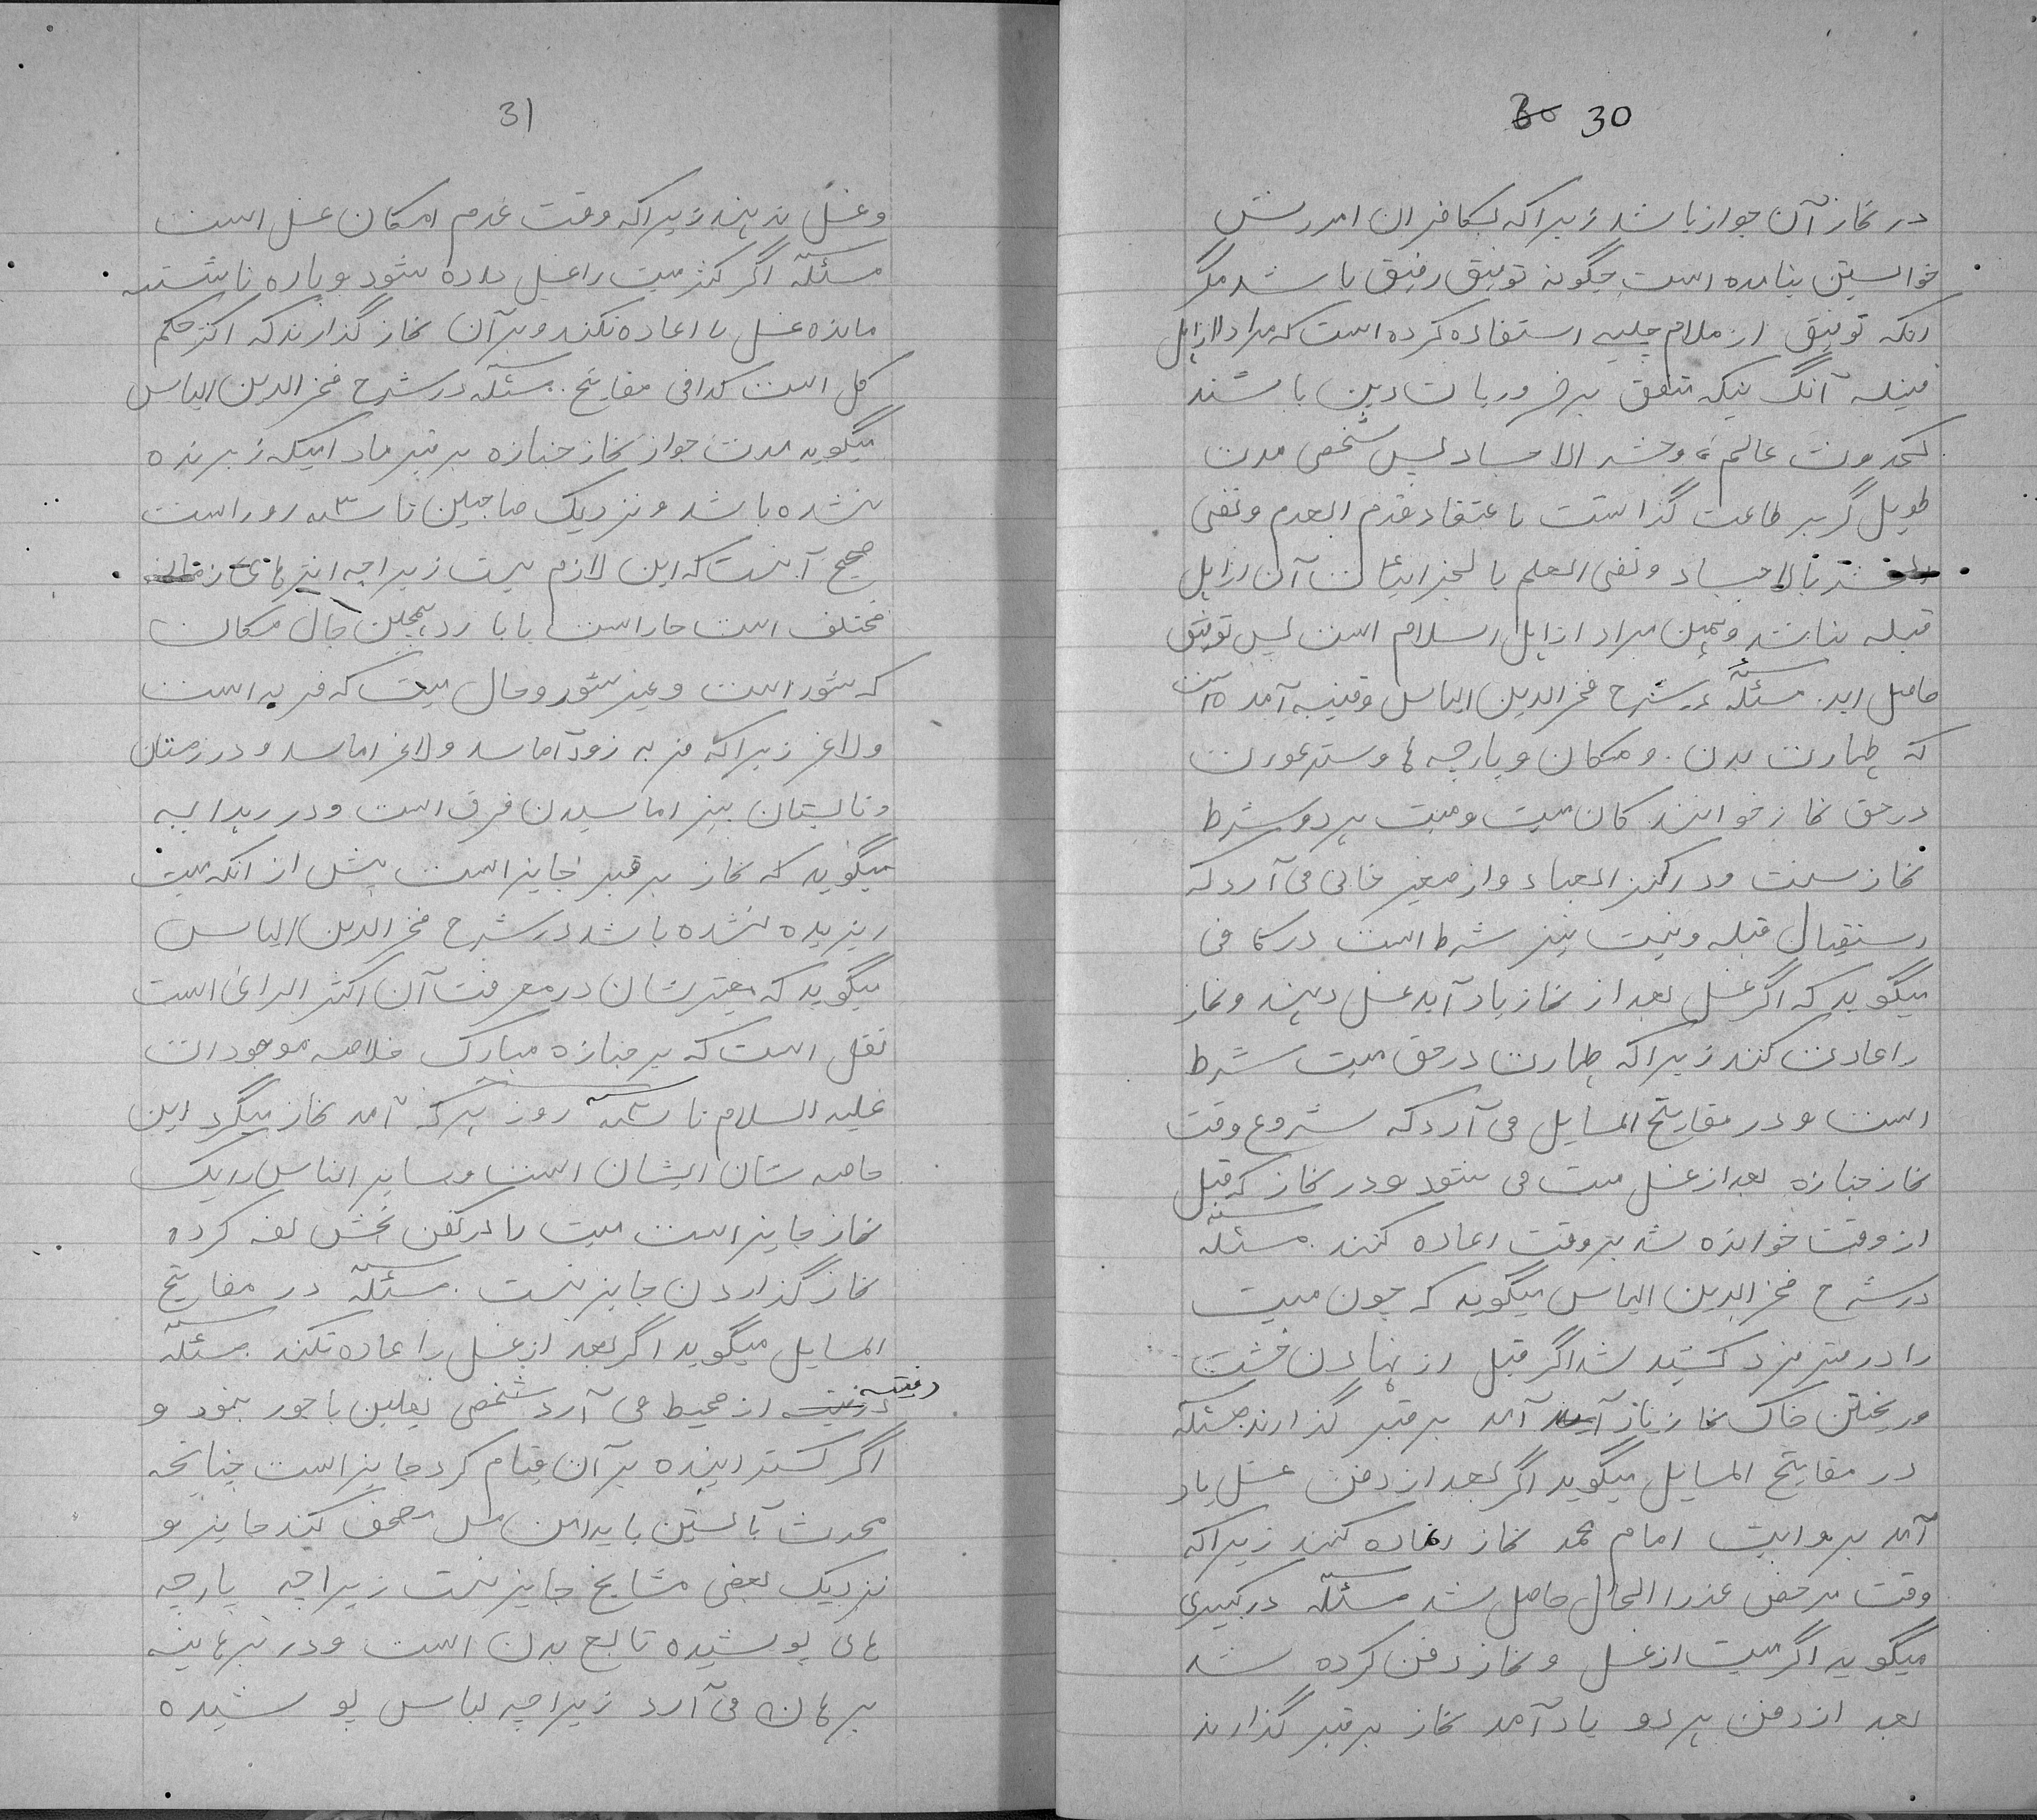 30
در نماز آن جواز باشد زیرا که بکافران امر رسش
خواستن نیامده است چگونه توفیق رفیق باشد مگر
انکه توفیق از ملام چلپی استفاده کرده است که مراد از اهل
قبله آنک نیکه متفق بر ضروریات دین باشند
کحدوث عالم وحشر الاجساد پس شخصی مدت
طویل گر بر طاعت گذاشت باعتقاد قدم العدم ونفی
حشر بالاجساد ونفی العلم بالجزائیات آن از اهل
قبله نباشد وهمین مراد از اهل اسلام است پس توفیق
حاصل اید. مسئله در شرح فخر الدین الیاس وقنیه آمده است
که طهارت بدن. و مکان و پارچه ها وستر عورت
در حق نماز خوانند کان میت ومیت هر دو شرط
نماز ست ودر کنز العباد واز صغیر خانی می آرد که
استقبال قبله ونیت نیز شرط است در کافی
میگوید که اگر غسل بعد از نماز یاد آید غسل دهند ونماز
را عادت کنند زیرا که طهارت در حق میت شرط
است و در مفاتیح المسایل می آرد که شروع وقت
نماز جنازه بعد از غسل میت می شود ودر نماز که قبل
از وقت خوانده شد بر وقت اعاده کنند. مسئله
در شرح فخر الدین الیاس میگوید که چون میت
را در قبر فرد کشید شد اگر قبل از نهادن خشت
وریختن خاک نماز یاز آمد بر قبر گذارند مسئله
در مفاتیح المسایل میگوید اگر بعد از دفن غسل یاد
آمد بر روایت امام محمد نماز اعاده کنند زیرا که
وقت مرخص عذر الحال حاصل شد مسئله در کبیری
میگوید اگر میت از غسل و نماز دفن کرده شد
بعد از دفن هر دو یاد آمد نماز بر قبر گذارند
31
وغسل ندهند زیرا که وقت عدم امکان غسل است
مسئله اگر کثر میت را غسل داده شود وپاره ناشسته
مانده غسل را اعاده نکنند وبر آن نماز گذارند که اکثر حکم
کل است کذا فی مفاتیح. مسئله در شرح فخر الدین الیاس
میگوید مدت جواز نماز جنازه بر قبر مادامیکه زبرنده
نشده باشد و نزدیک صاحبین تا سه روز است
صحیح آنست که این لازم نیست زیرا چه اثر های زمانه
مختلف است حار است یا بارد همچنین حال مکان
که شور است و غیر شور وحال میت که فربه است
ولاغر زیرا که فربه زود آماسد ولاغر اماسد و در زمستان
وتابستان نیز اماسیدن فرق است ودر هدایه
میگوید که نماز بر قبر جایز است پیش از انکه میت
ریزیده نشده باشد در شرح فخر الدین الیاس
میگوید که معتبر شان در معرفت آن اکثر الرای است
نقل است که بر جنازه مبارک خلاصه موجودات
علیه السلام تا سه روز هر که آمد نماز میگرد این
خاصه شان ایشان است وسایر الناس را یک
نماز جایز است میت را در کفن نجس لف کرده
نماز گذاردن جایز نیست. مسئله در مفاتیح
المسایل میگوید اگر بعد از غسل را عاده نکنند مسئله
در قنیه از محیط می آرد شخصی نعلین با جور نمود و
اگر کسترانیده بر آن قیام کرد جایز است چنانچه
محدث آبستین یا بدامن مس مصحف کند جایز و
نزدیک بعضی مشایخ جایز نیست زیرا چه پارچه
های پوشیده تابع بدن است ودر برهانیه
برهان می آرد زیرا چه لباس پو شیده